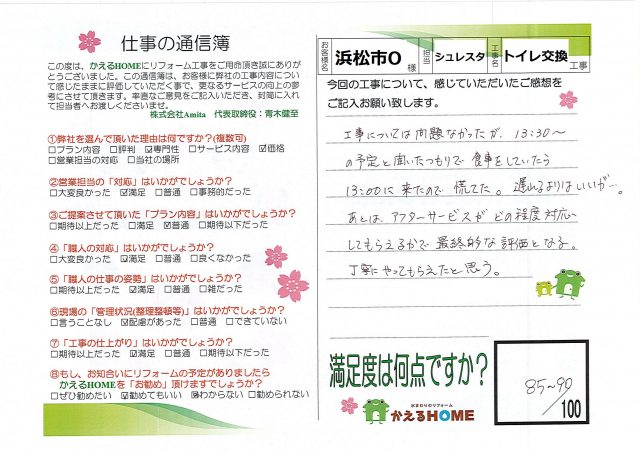 仕事の通信簿
この度は、かえるHOMEにリフォーム工事をご用命頂き誠にありが
とうございました。この通信簿は、お客様に弊社の工事内容につい
て感じたままに評価していただく事で、更なるサービスの向上の参
考にさせて頂きます。率直なご意見をご記入いただき、封筒に入れ
て担当者へお渡しくださいませ。
株式会社Amita 代表取締役:青木健至
①弊社を選んで頂いた理由は何ですか?(複数可)
□プラン内容 □評判 ☑専門性 □サービス内容 ☑価格
□営業担当の対応 □当社の場所
②営業担当の「対応」はいかがでしょうか?
□大変良かった ☑満足 □普通 □事務的だった
③ご提案させて頂いた「プラン内容」はいかがでしょうか?
□期待以上だった □満足 ☑普通 □期待以下だった
④「職人の対応」はいかがでしょうか?
□大変良かった ☑満足 □普通 □良くなかった
⑤「職人の仕事の姿勢」はいかがでしょうか?
□期待以上だった ☑満足 □普通 □雑だった
⑥現場の「管理状況(整理整頓等)」はいかがでしょうか?
□言うことなし ☑配慮があった □普通 □できていない
⑦「工事の仕上がり」はいかがでしょうか?
□期待以上だった ☑満足 □普通 □期待以下だった
⑧もし、お知合いにリフォームの予定がありましたら
かえるHOMEを「お勧め」頂けますでしょうか?
□ぜひ勧めたい ☑勧めてもいい ☑わからない □勧められない
お客様名 浜松市O 様 担当 シュレスタ 工事名 トイレ交換 工事
今回の工事について、感じていただいたご感想を
ご記入お願い致します。
工事については問題なかったが、13:30～
の予定と聞いたつもりで食事をしていたら
13:00に来たので慌てた。遅れるよりはいいが…。
あとは、アフターサービスがどの程度対応
してもらえるかで最終的な評価となる。
丁寧にやってもらえたと思う。
満足度は何点ですか?
85~90
/100
水まわりのリフォーム
かえるHOME